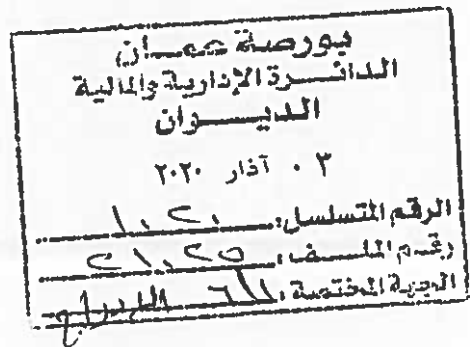 بورصة عمان
الدائرة الإدارية والمالية
الديوان
٠٣ آذار ٢٠٢٠
الرقم المتسلسل: ١٠٢٠
رقم الملف: ٢١٠٢٥
الجهة المختصة: